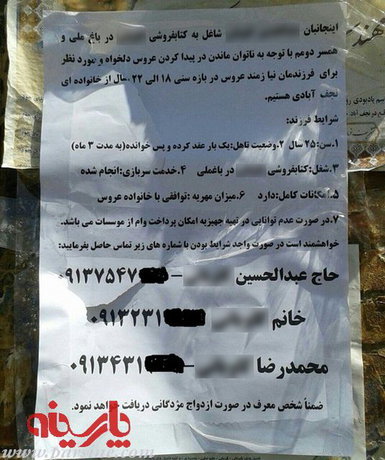 اینجانبان شاغل به کتابفروشی در باغ ملی و
همسر دومم با توجه به ناتوان ماندن در پیدا کردن عروس دلخواه و مورد نظر
برای فرزندمان نیازمند عروس در بازه سنی ۱۸ الی ۲۲ سال از خانواده ای
نجف آبادی هستیم.
شرایط فرزند:
۱.سن:۲۵ سال ۲.وضعیت تاهل:یک بار عقد کرده و پس خوانده (به مدت ۳ ماه)
۳.شغل:کتابفروشی در باغملی ۴.خدمت سربازی:انجام شده
۵.امکانات کامل:دارد ۶.میزان مهریه :توافقی با خانواده عروس
۷.در صورت عدم توانایی در تهیه جهیزیه امکان پرداخت وام از موسسات می باشد.
خواهشمند است در صورت واجد شرایط بودن با شماره های زیر تماس حاصل بفرمایید:
حاج عبدالحسین – ۰۹۱۳۷۵۴۷
خانم ۰۹۱۳۲۳۱
محمدرضا – ۰۹۱۳۴۳۱
ضمناً شخص معرف در صورت ازدواج مژدگانی دریافت خواهد نمود.
پارسینه
www.parsine.com